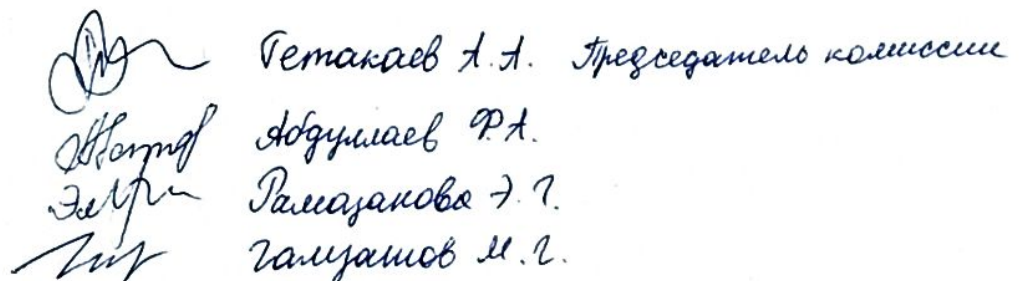 Гетакаев А.А. Председатель комиссии
Абдуллаев Ф.А.
Рамазанова Э.Г.
М.Г.